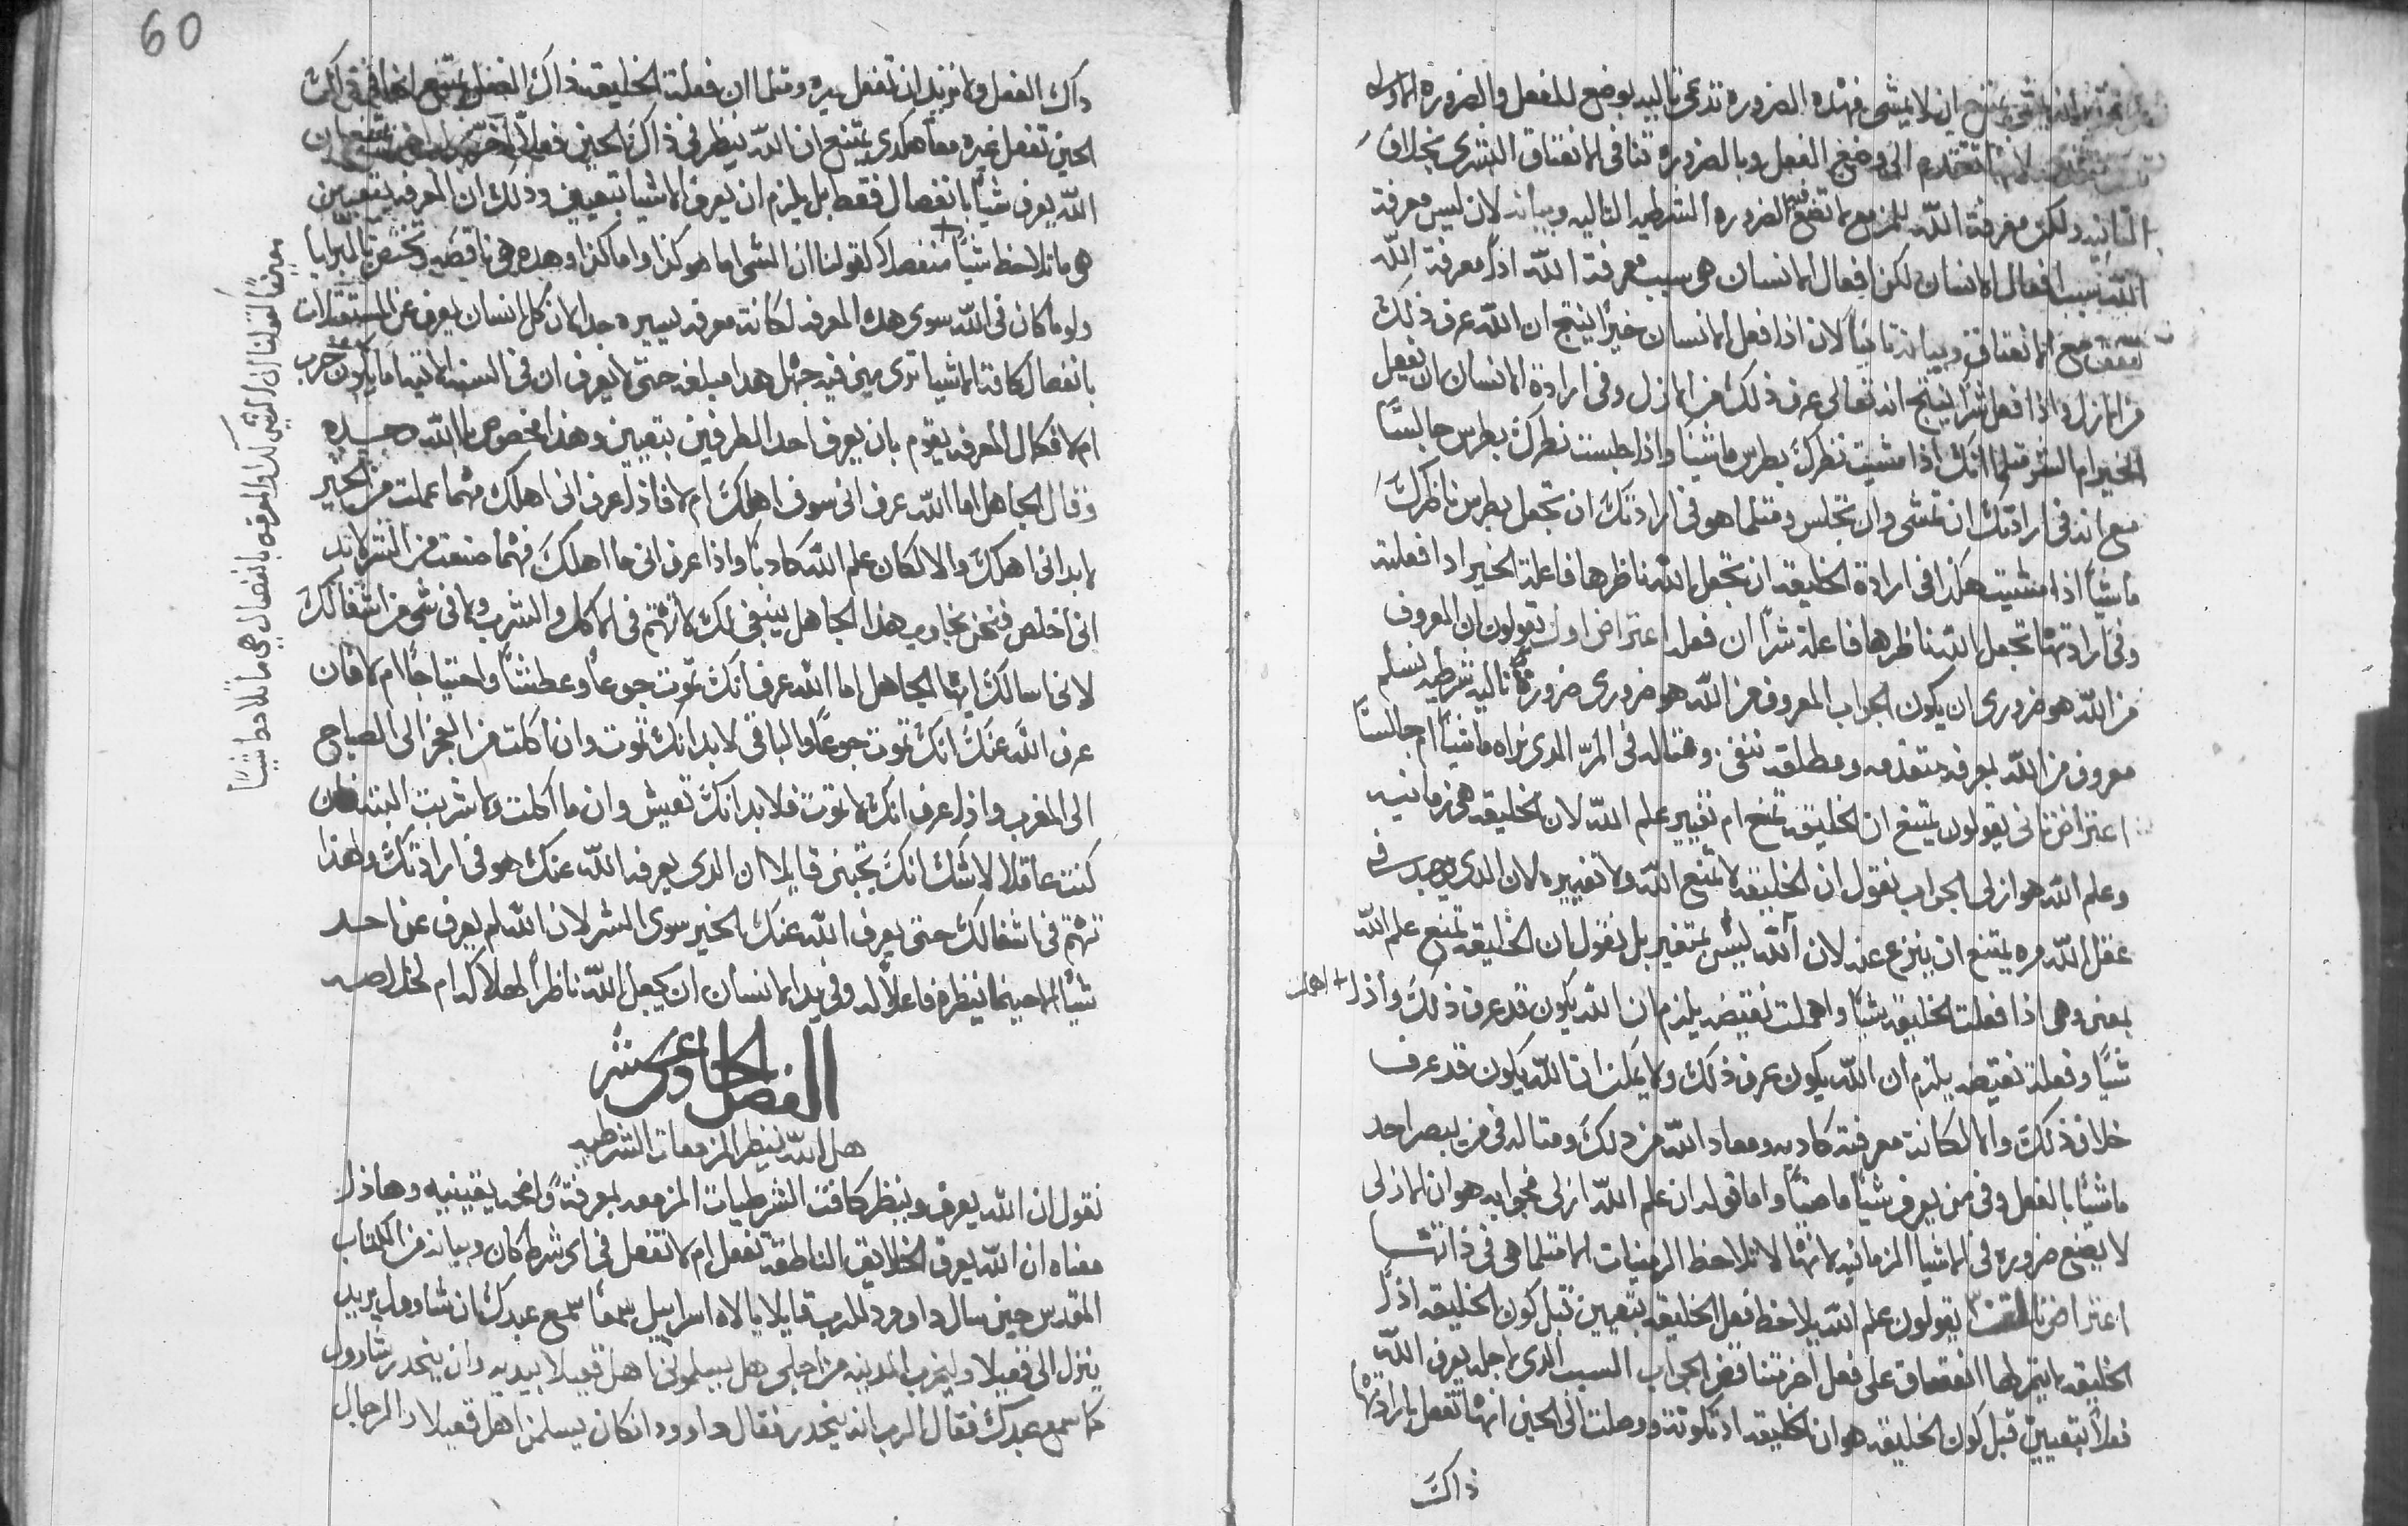 يمتنع ان لا يمشى فهذه الضروره تدعى تاليه بوضع للفعل والضروره الاوله
لانها تتقدم الى وضع الفعل وبالضروره تنافى الانعتاق البشرى بخلاف
الثانيه ولكن معرفة الله للمزمع لا تضع فيه الضروره الشرطيه التاليه وبيانه لان ليس معرفة
الله سبب افعال الانسان لكن افعال الانسان هى سبب معرفة الله اذاً معرفة الله
مع الانعتاق وبيانه ثانياً لان اذا فعل الانسان خيراً ينتج ان الله عرف ذلك
من الازل واذا فعل شراً ينتج انه تعالى عرف ذلك من الازل وفى ارادة الانسان ان يفعل
الخير ام الشر مثلما انك اذا مشيت نظرك بطرس ماشياً واذا جلست نظرك بطرس جالسًا
مع انه فى ارادتك ان تمشى وان تجلس ومثلما هو فى ارادتك ان تجعل بطرس ناظرك
ماشياً اذا مشيت هكذا فى ارادة الخليقه ان تجعل الله ناظرها فاعلة الخير اذا فعلته
وفى ارادتها تجعل الله ناظرها فاعلة شراً ان فعله اعتراض اول تقولون ان المعروف
من الله هو ضرورى ان يكون الجواب المعروف من الله هو ضرورى ضرورةً تاليه شرطيه نسلم
معروف من الله بمعرفه متقدمه ومطلقه ننفى ومثاله فى المرء الذى نراه ماشياً ام جالسًا
اعتراض ثانى يقولون يمتنع ان الخليقه تمنع ام تغيير علم الله لان الخليقه هى زمانيه
وعلم الله هو ازلى الجواب نقول ان الخليقه لا تمنع الله ولا تغييره لان الذى يوجد فى
عقل الله مره يمتنع ان ينزع عنه لان الله ليس بمتغير بل نقول ان الخليقه تمنع علم الله
بمعنى وهى اذا فعلت الخليقه شيًا واهملت نقيضه يلزم ان الله يكون قد عرف ذلك واذا + اهملت
شيًا وفعلت نقيضه يلزم ان الله يكون عرف ذلك ولا يمكن ان الله يكون قد عرف
خلاف ذلك والا لكانت معرفته كاذبه ومعاذ الله من ذلك ومثاله فى من يبصر احد
ماشيًا بالفعل وفى من يعرف شيًا ماضيًا واما قوله ان علم الله ازلى فجوابه هو ان الازلى
لا يضع ضروره فى الاشيا الزمانيه لانها لا تلاحظ الزمنيات الا مثلما هى فى ذاتها
اعتراض ثالث يقولون علم الله يلاحظ فعل الخليقه بتعيين قبل كون الخليقه اذاً
الخليقه لا يتم لها انعتاق على فعل اخر متناقض الجواب السبب الذى لاجله يعرف الله
فعلاً بتعيين قبل كون الخليقه هو ان الخليقه اذ تكونت ووصلت الى الحين انها تفعل بارادتها
ذاك
60
ذاك الفعل ولا تريد ان تفعل غيره ومثلما ان فعلت الخليقه ذاك الفعل يمتنع انها فى ذاك
الحين تفعل غيره معاً هكذى يمتنع ان الله ينظر فى ذاك الحين فعلاً اخر
الله يعرف شياً بانفصال فقط بل يلزم ان يعرف الاشيا بتعيين وذلك ان المعرفه بتعيين
هى ما تلاحظ شيًا + منفصلاً كقولنا ان الشى اما هو كذا واما كذا وهذه هى ناقصه وتختص بالبرايا
ولو ما كان فى الله سوى هذه المعرفه لكانت معرفه يسيره جدا لان كل انسان يعرف عن المستقبلات
بانفصال كافة الاشيا ترى من فيه جهل هذا مبلغه حتى لا يعرف ان فى السنه الاتيه اما يكون حرب
ام لا فكمال المعرفه يقوم بان يعرف احد الطرفين بتعيين وهذا مخصوص بالله وحده
وقال الجاهل اما الله عرف انى سوف اهلك ام لا فاذا عرف انى اهلك مهما عملت من الخير
لا بد انى اهلك والا لكان علم الله كاذبًا واذا عرف انى ما اهلك فمهما صنعت من الشر لا بد
انى اخلص فنحن نجاوب هذا الجاهل ينبغى لك لا تهتم فى الاكل والشرب ولا فى شى من اشغالك
لانى اسالك ايها الجاهل اما الله عرف انك تموت جوعاً وعطشاً واحتياجاً ام لا فان
عرف الله عنك انك تموت جوعاً والباقى لا بد انك تموت وان اكلت من الفجر الى الصباح
الى المغرب واذا عرف انك لا تموت فلا بد انك تعيش وان ما اكلت ولا شربت البته فان
كنت عاقلا لا شك انك تجبنى قايلا ان الذى يعرفه الله عنك هو فى ارادتك ولهذا
تهتم فى اشغالك حتى يعرف الله عنك الخير سوى الشر لان الله لم يعرف عن احد
شيًا الا حينما ينظره فاعلاً له وفى يد الانسان ان يجعل الله ناظراً لهلاكه ام لخلاصه
الفصل الحادى عشر
هل الله ينظر المزمعات الشرطيه
نقول ان الله يعرف وينظر كافة الشرطيات المزمعه بمعرفةً واضحه يقينيه وهاذا
معناه ان الله يعرف الخلايق الناطقه تفعل ام لا تفعل فى اى شرط كان وبيانه من الكتاب
المقدس حين سال داوود للرب قايلا يا الاه اسراييل سمعاً سمع عبدك ان شاوول يريد
ينزل الى قعيلا وليخرب المدينه من اجلى هل يسلمونى اهل قعيلا بيديه وان ينحدر شاوول
كما سمع عبدك فقال الرب انه ينحدر فقال داوود ان كان يسلمنى اهل قعيلا والرجال
معيناً كقولنا ان الشى كذا والمعرفه بانفصال هى ما تلاحظ شيًا